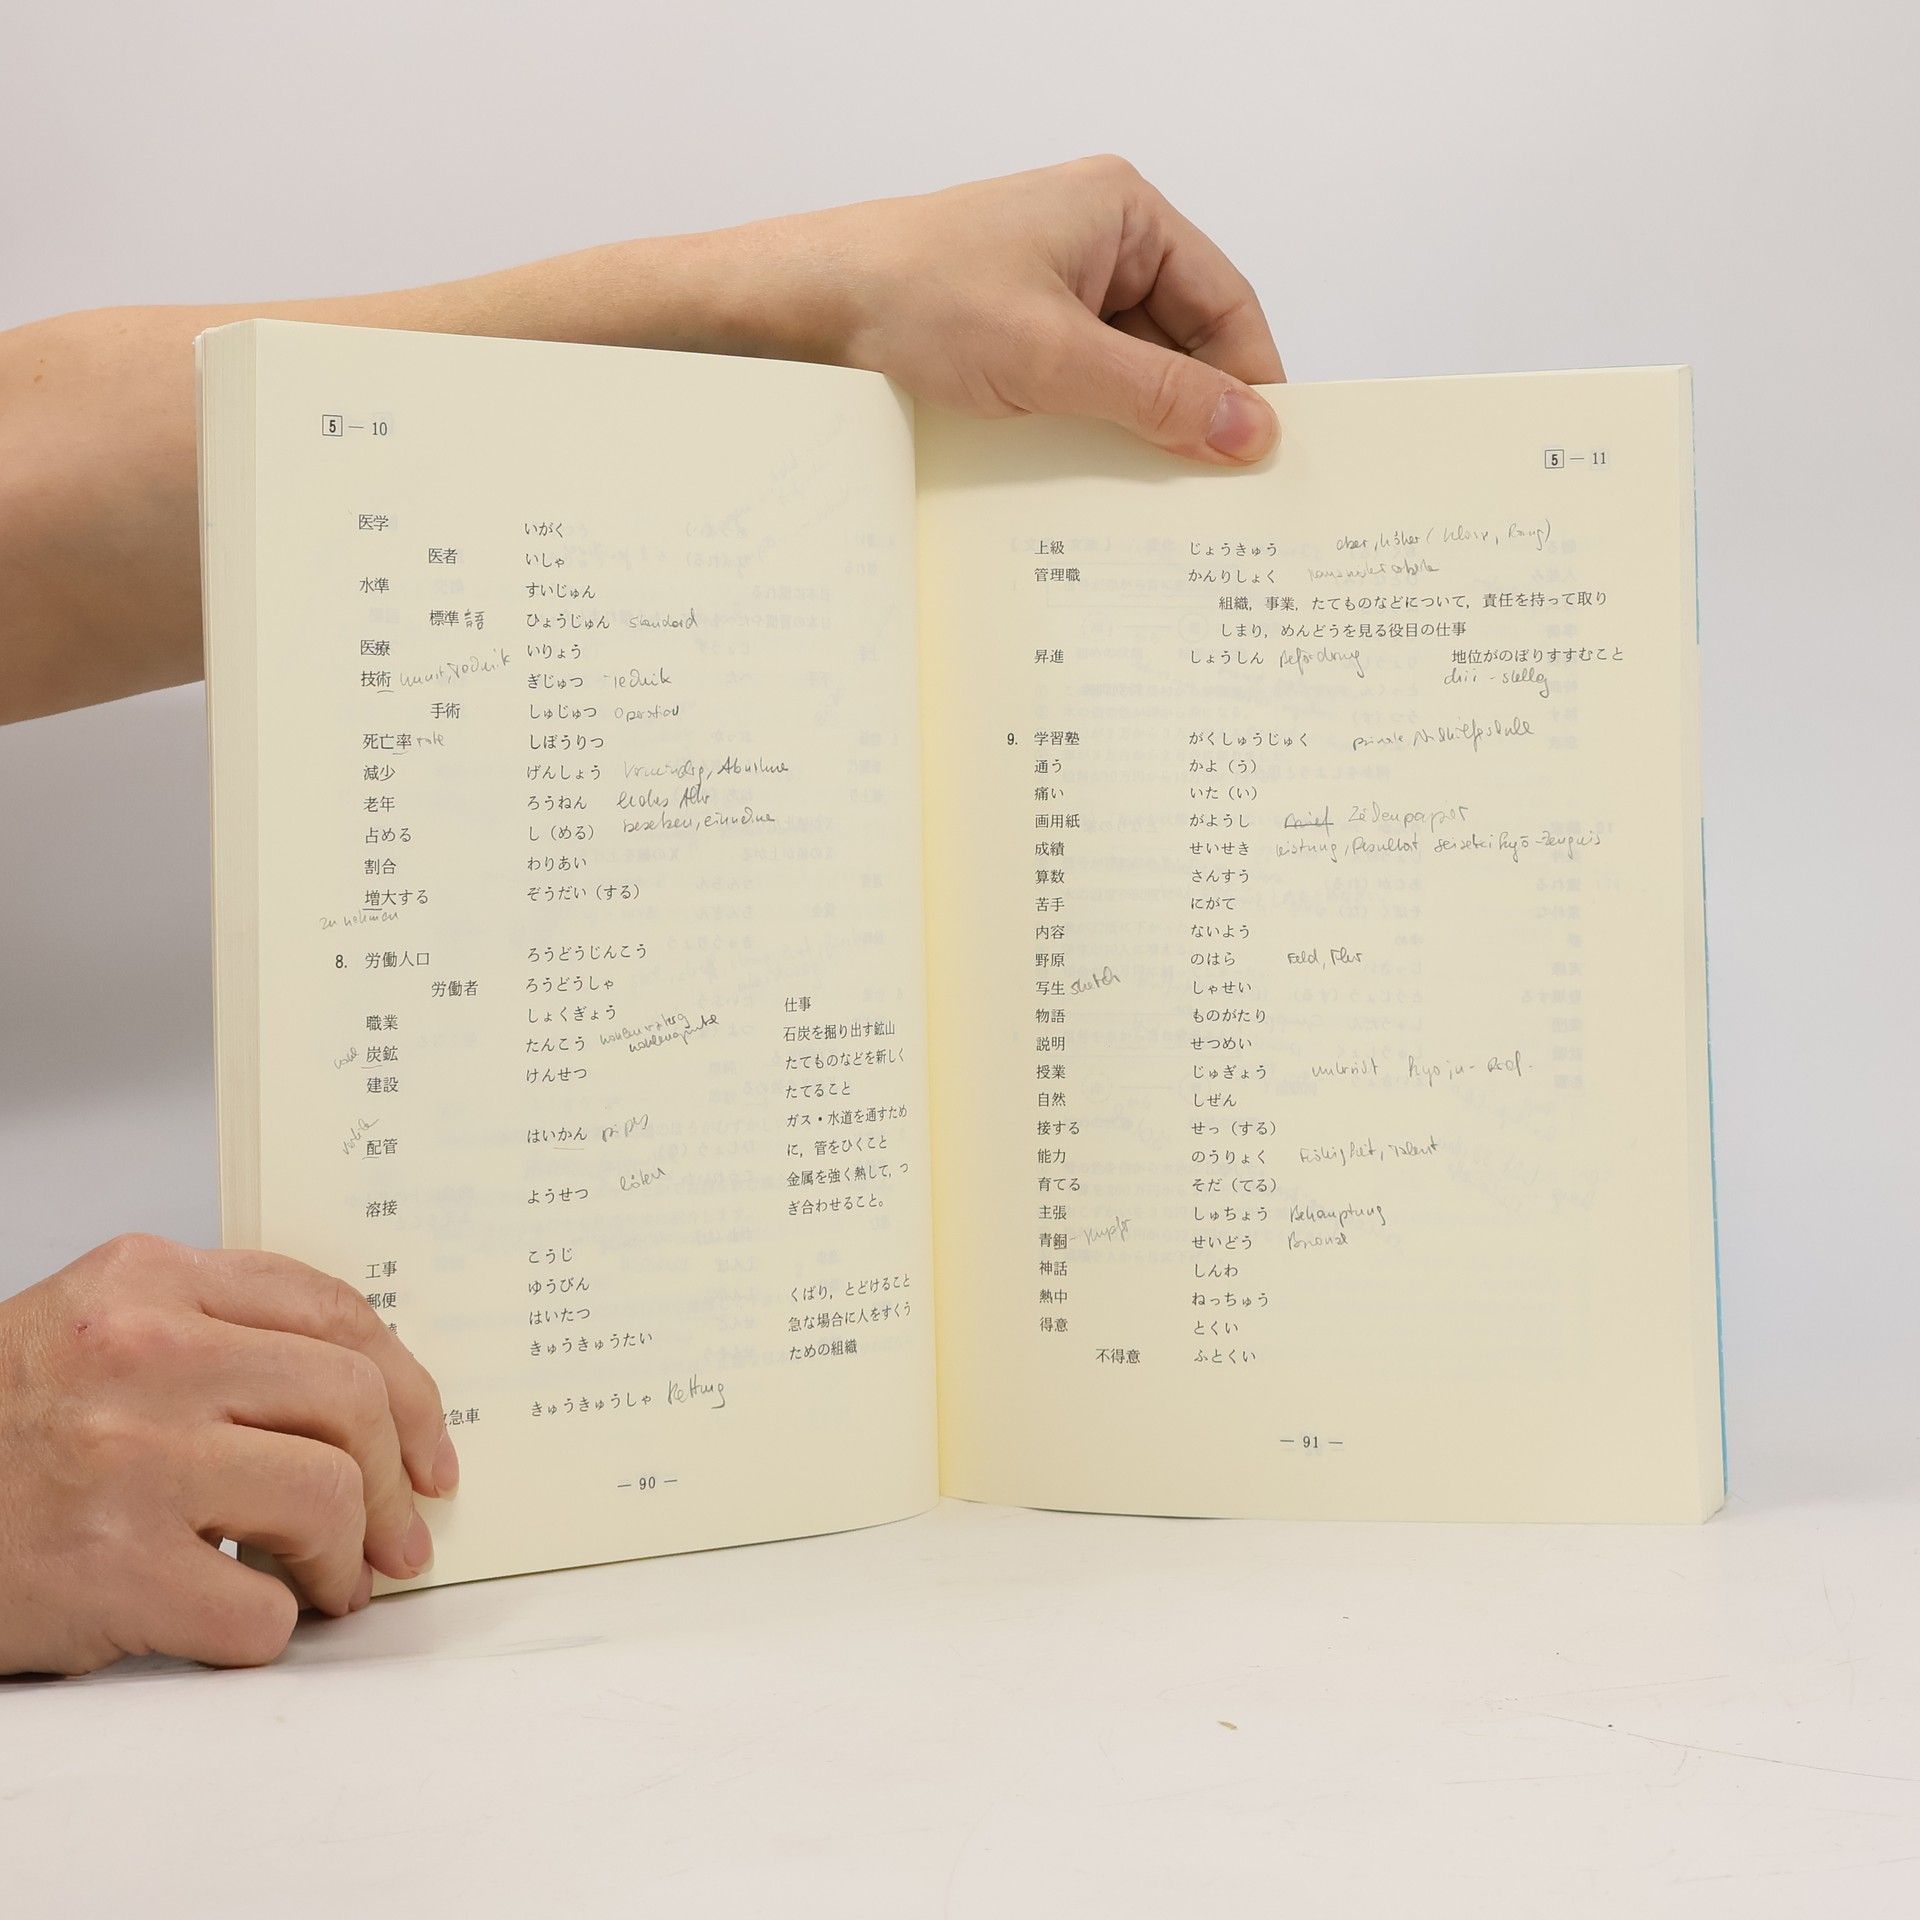 5 — 10
医学 いがく
医者 いしゃ
水準 すいじゅん
標準語 ひょうじゅん standard
医療 いりょう
技術 Kunst, Technik ぎじゅつ Technik
手術 しゅじゅつ Operation
死亡率 rate しぼうりつ
減少 げんしょう Abnahme
老年 ろうねん hohes Alter
占める し（める） besetzen, einnehmen
割合 わりあい
増大する ぞうだい（する）
zunehmen
8. 労働人口 ろうどうじんこう
労働者 ろうどうしゃ
職業 しょくぎょう 仕事
炭鉱 たんこう 石炭を掘り出す鉱山
建設 けんせつ たてものなどを新しく
たてること
配管 はいかん pipes ガス・水道を通すため
に，管をひくこと
溶接 ようせつ löten 金属を強く熱して，つ
ぎ合わせること。
工事 こうじ
郵便 ゆうびん
はいたつ くばり，とどけること
きゅうきゅうたい 急な場合に人をすくう
ための組織
急車 きゅうきゅうしゃ Rettung
— 90 —
5 — 11
上級 じょうきゅう ober, höher (Klasse, Rang)
管理職 かんりしょく
組織，事業，たてものなどについて，責任を持って取り
しまり，めんどうを見る役目の仕事
昇進 しょうしん Beförderung 地位がのぼりすすむこと
9. 学習塾 がくしゅうじゅく private Nachhilfeschule
通う かよ（う）
痛い いた（い）
画用紙 がようし Zeichenpapier
成績 せいせき Leistung, Resultat seisekihyō-Zeugnis
算数 さんすう
苦手 にがて
内容 ないよう
野原 のはら Feld, Flur
写生 sketch しゃせい
物語 ものがたり
説明 せつめい
授業 じゅぎょう Unterricht kyoju - Prof.
自然 しぜん
接する せっ（する）
能力 のうりょく Fähigkeit, Talent
育てる そだ（てる）
主張 しゅちょう Behauptung
青銅 - Kupfer せいどう Bronze
神話 しんわ
熱中 ねっちゅう
得意 とくい
不得意 ふとくい
— 91 —